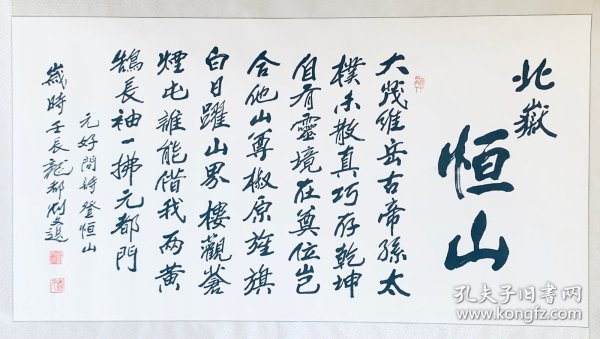 北嶽
恒山
大茂維岳古帝孫太
樸未散真巧存乾坤
自有靈境在奠位豈
合他山尊椒原旌旗
白日躍山界樓觀蒼
煙屯誰能借我兩黃
鵠長袖一拂元都門
元好問詩登恒山
歲時壬辰龍都
孔夫子旧书网
www.kongfz.com